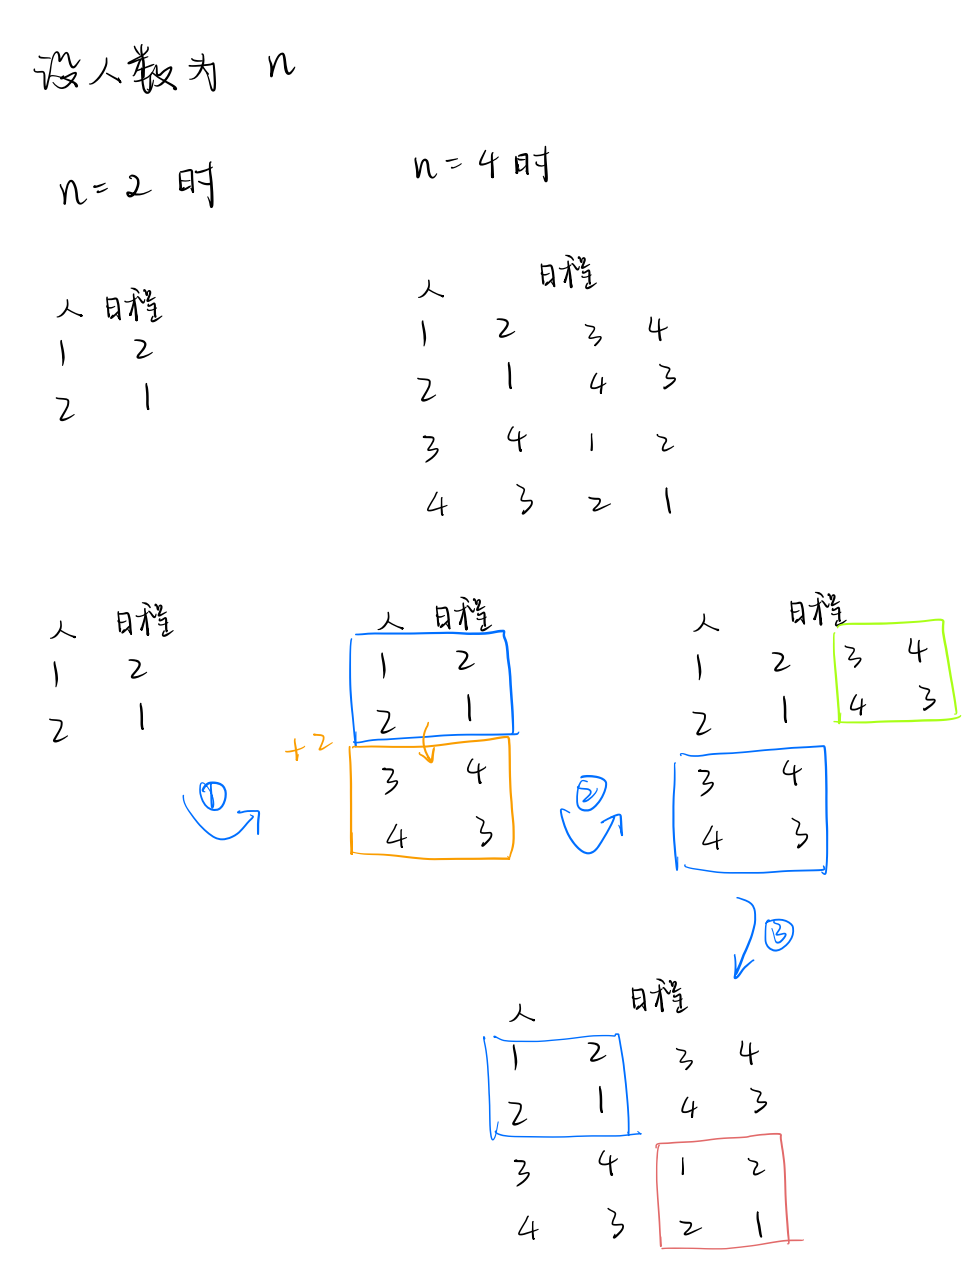 设人数为 n
n=2 时
n=4时
人 日程
1 2
2 1
人 日程
1 2 3 4
2 1 4 3
3 4 1 2
4 3 2 1
人 日程
1 2
2 1
①
人 日程
1 2
2 1
+2
3 4
4 3
②
人 日程
1 2 3 4
2 1 4 3
3 4
4 3
③
人 日程
1 2 3 4
2 1 4 3
3 4 1 2
4 3 2 1